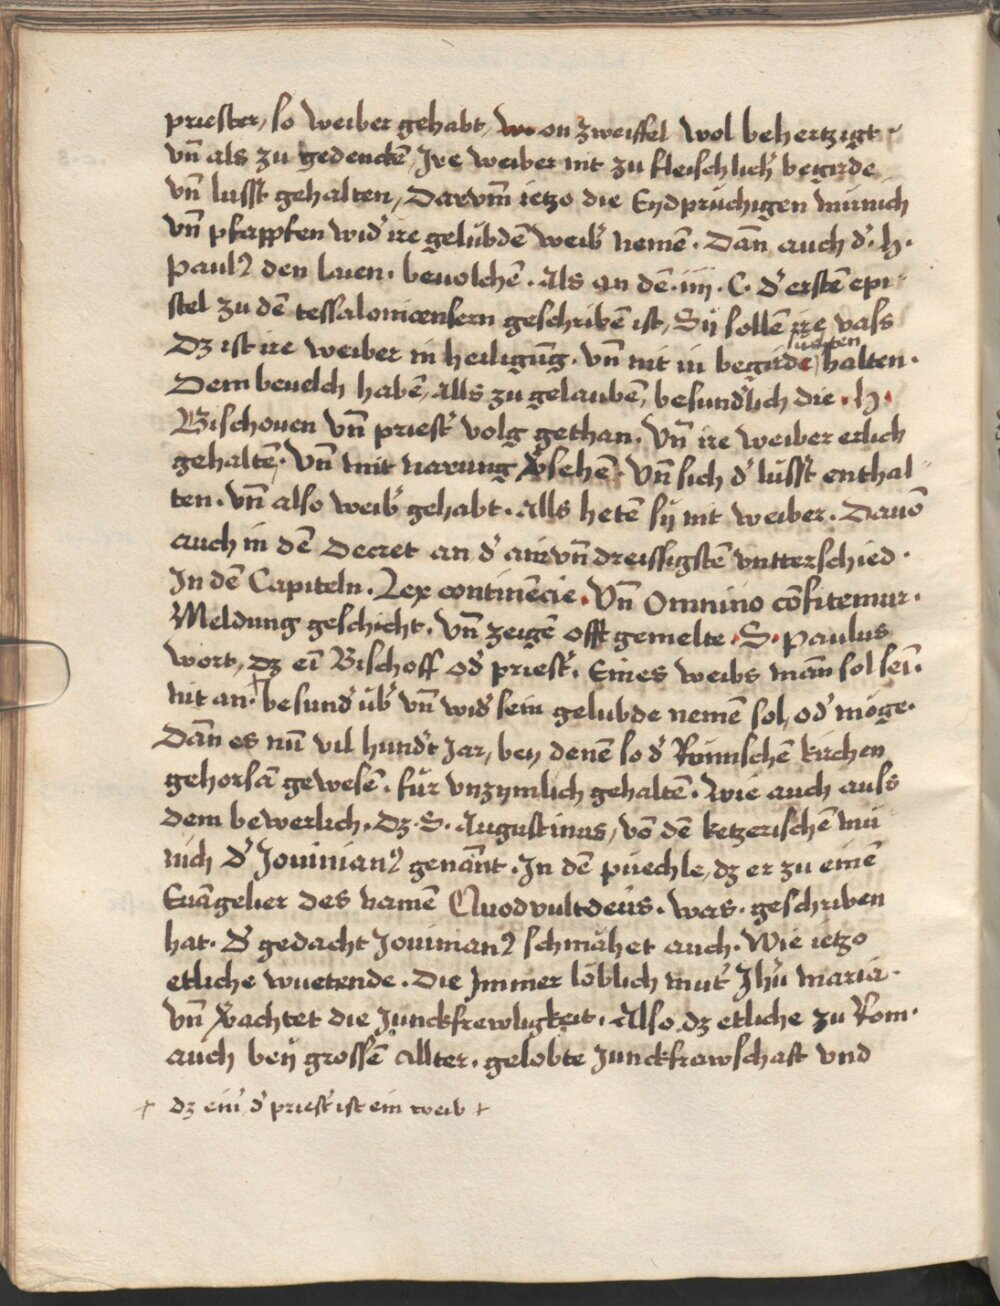 priester, so weiber gehabt, on zweiffel wol behertzigt
vn̄ als zu gedenckē, Ire weiber nit zu fleischlich' begirde
vn̄ lusst gehalten, Darvm̄ ietzo die Eydprüchigen münich
vn̄ pfapffen wid' ire gelübdē weib' nemē. Dan̄ auch d'. h.
Paulꝰ den laien. beuolchē. Als an dē .iiij. C. d' erstē epi
stel zu dē tessalonicensern geschribē ist, Sÿ sollē ire vass
Dz ist ire weiber in heiligūg. vn̄ nit in begirde halten.
Dem beuelch habē, alls zu gelaubē, besund'lich die .h.
Bischouen vn̄ priest' volg gethan. vn̄ ire weiber erlich
gehaltē. vn̄ mit narung v'sehē. vn̄ sich d' lusst enthal
ten. vn̄ also weib' gehabt. Alls hetē sÿ nit weiber. Dauō
auch in dē Decret an d' ainvn̄dreissigstē vntterschied.
In dē Capiteln. Lex continēcie. vn̄ Omnino cōfitemur.
Meldung geschicht. vn̄ zeigē offt gemelte .S. paulus
wort, dz eī Bischoff od' priest'. Eines weibs man sol seī.
nit an. besund' üb' vn̄ wid' sein gelubde nemē sol, od' möge.
Dan̄ es nū vil hund't Jar, bey denē so d' Römischē kirchen
gehorsā gewesē. für vnzymlich gehaltē. Wie auch auss
dem bewerlich. Dz .S. Augustinus, vō dē ketzerischē mü
nich d' Jouinianꝰ genān̄t. In dē püechle, dz er zu einē
Euāgelier des namē Quodvultdeüs. was. geschriben
hat. D' gedacht Jouinianꝰ schmähet auch. Wie ietzo
etliche wuetende. Die Immer löblich mut' Jhū maria.
vn̄ v'achtet die Junckfrewligkeit. Also dz etliche zu Rom.
auch beÿ grossē allter. gelobte Junckfrawschaft vnd
+ dz ein' d' priest' ist ein weib +